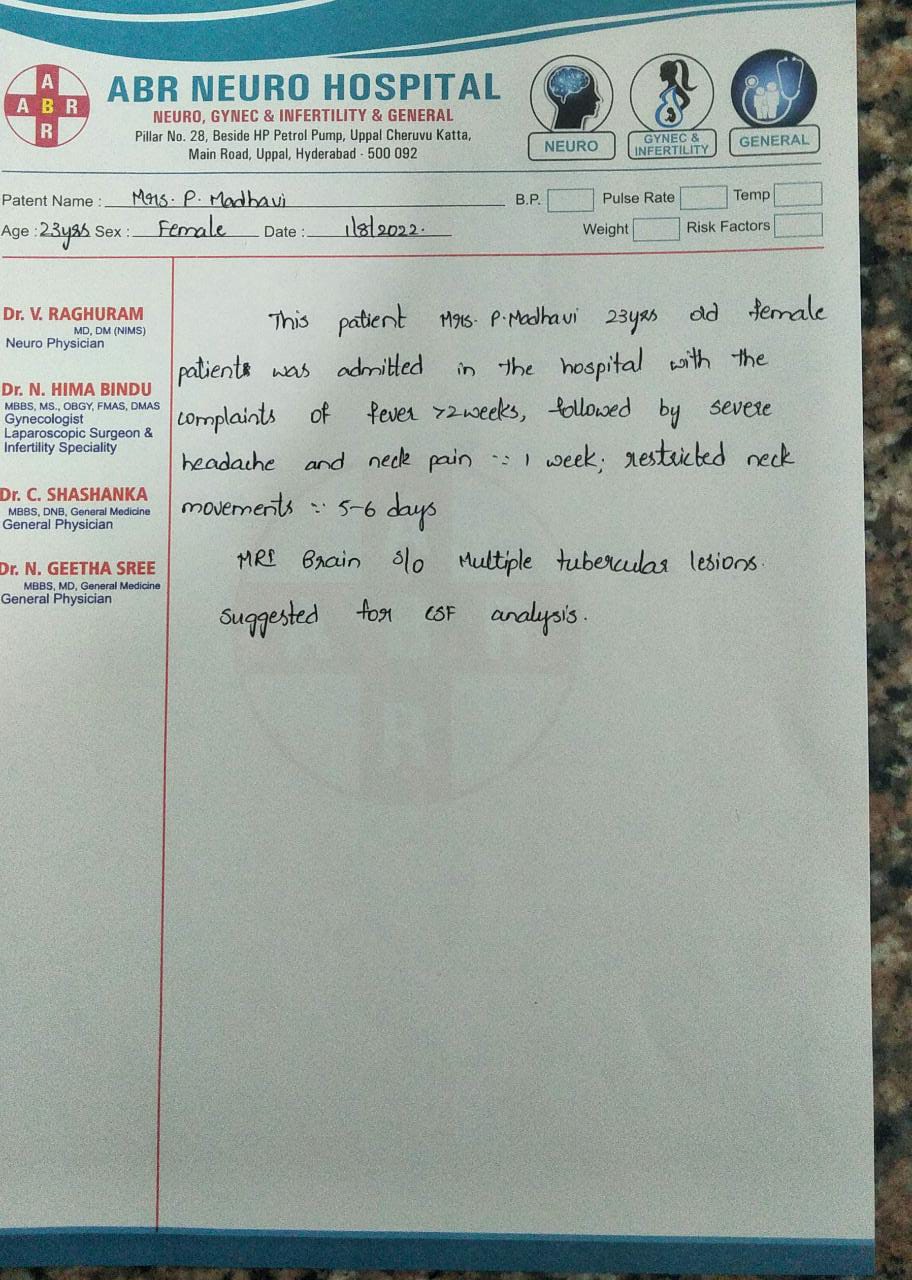 A
A B R
R
ABR NEURO HOSPITAL
NEURO, GYNEC & INFERTILITY & GENERAL
Pillar No. 28, Beside HP Petrol Pump, Uppal Cheruvu Katta,
Main Road, Uppal, Hyderabad - 500 092
NEURO
GYNEC &
INFERTILITY
GENERAL
Patent Name : Mrs. P. Madhavi B.P. Pulse Rate Temp
Age : 23yrs Sex : Female Date : 1/8/2022. Weight Risk Factors
Dr. V. RAGHURAM
MD, DM (NIMS)
Neuro Physician
Dr. N. HIMA BINDU
MBBS, MS., OBGY, FMAS, DMAS
Gynecologist
Laparoscopic Surgeon &
Infertility Speciality
Dr. C. SHASHANKA
MBBS, DNB, General Medicine
General Physician
Dr. N. GEETHA SREE
MBBS, MD, General Medicine
General Physician
This patient Mrs. P. Madhavi 23yrs old female
patients was admitted in the hospital with the
complaints of fever >2 weeks, followed by severe
headache and neck pain :: 1 week; restricted neck
movements :: 5-6 days
MRI Brain s/o Multiple tubercular lesions.
suggested for CSF analysis.